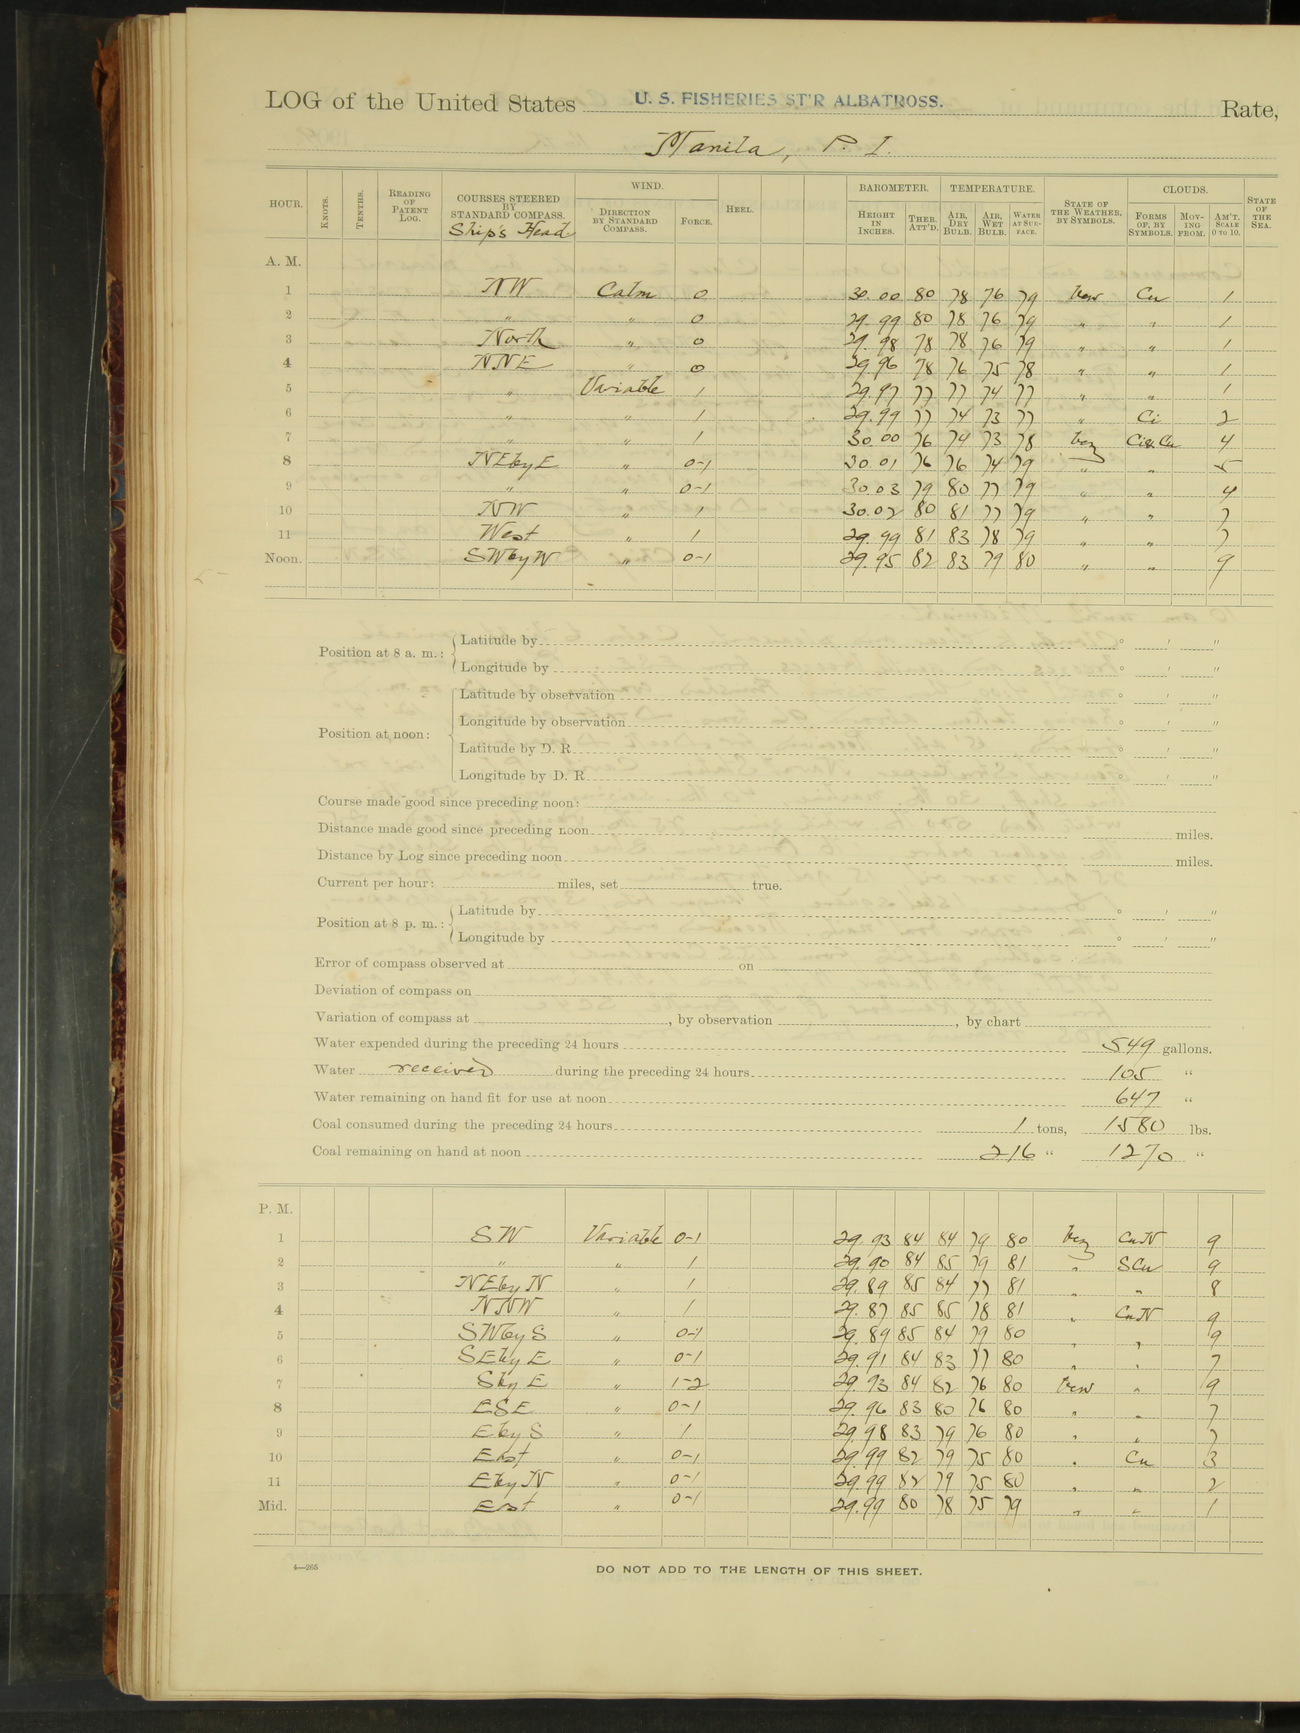 LOG of the United States U. S. FISHERIES ST'R ALBATROSS. Rate,
Manila, P. I.
HOUR. KNOTS. TENTHS. READING OF PATENT LOG. COURSES STEERED BY STANDARD COMPASS. Ship's Head WIND. DIRECTION BY STANDARD COMPASS. FORCE. HEEL. BAROMETER. HEIGHT IN INCHES. THER. ATT'D. TEMPERATURE. AIR, DRY BULB. AIR, WET BULB. WATER AT SURFACE. STATE OF THE WEATHER, BY SYMBOLS. CLOUDS. FORMS OF, BY SYMBOLS. MOVING FROM. AM'T. SCALE 0 TO 10. STATE OF THE SEA.
A. M.
1 NW Calm 0 30.00 80 78 76 79 bcw Cu 1
2 " " 0 29.99 80 78 76 79 " " 1
3 North " 0 29.98 78 78 76 79 " " 1
4 NNE " 0 29.96 78 76 75 78 " " 1
5 " Variable 1 29.97 77 77 74 77 " " 1
6 " " 1 29.99 77 74 73 77 " Ci 2
7 " " 1 30.00 76 74 73 78 bcz Ci&Cu 4
8 NEbyE " 0-1 30.01 76 76 74 79 " " 5
9 " " 0-1 30.03 79 80 77 79 " " 4
10 NW " 1 30.02 80 81 77 79 " " 7
11 West " 1 29.99 81 83 78 79 " " 7
Noon. SWbyW " 0-1 29.95 82 83 79 80 " " 9
Position at 8 a. m.: Latitude by ° ' "
Longitude by ° ' "
Position at noon: Latitude by observation ° ' "
Longitude by observation ° ' "
Latitude by D. R ° ' "
Longitude by D. R ° ' "
Course made good since preceding noon:
Distance made good since preceding noon miles.
Distance by Log since preceding noon miles.
Current per hour: miles, set true.
Position at 8 p. m.: Latitude by ° ' "
Longitude by ° ' "
Error of compass observed at on
Deviation of compass on
Variation of compass at , by observation , by chart
Water expended during the preceding 24 hours 549 gallons.
Water received during the preceding 24 hours 105 "
Water remaining on hand fit for use at noon 647 "
Coal consumed during the preceding 24 hours 1 tons, 1580 lbs.
Coal remaining on hand at noon 216 " 1270 "
P. M.
1 SW Variable 0-1 29.93 84 84 79 80 bcz CuN 9
2 " " 1 29.90 84 85 79 81 " SCu 9
3 NEbyN " 1 29.89 85 84 77 81 " " 8
4 NNW " 1 29.87 85 85 78 81 " CuN 9
5 SWbyS " 0-1 29.89 85 84 79 80 " " 9
6 SEbyE " 0-1 29.91 84 83 77 80 " " 7
7 SbyE " 1-2 29.93 84 82 76 80 bcw " 9
8 ESE " 0-1 29.96 83 80 76 80 " " 7
9 EbyS " 1 29.98 83 79 76 80 " " 7
10 East " 0-1 29.99 82 79 75 80 " Cu 3
11 EbyN " 0-1 29.99 82 79 75 80 " " 2
Mid. East " 0-1 29.99 80 78 75 79 " " 1
4—265
DO NOT ADD TO THE LENGTH OF THIS SHEET.